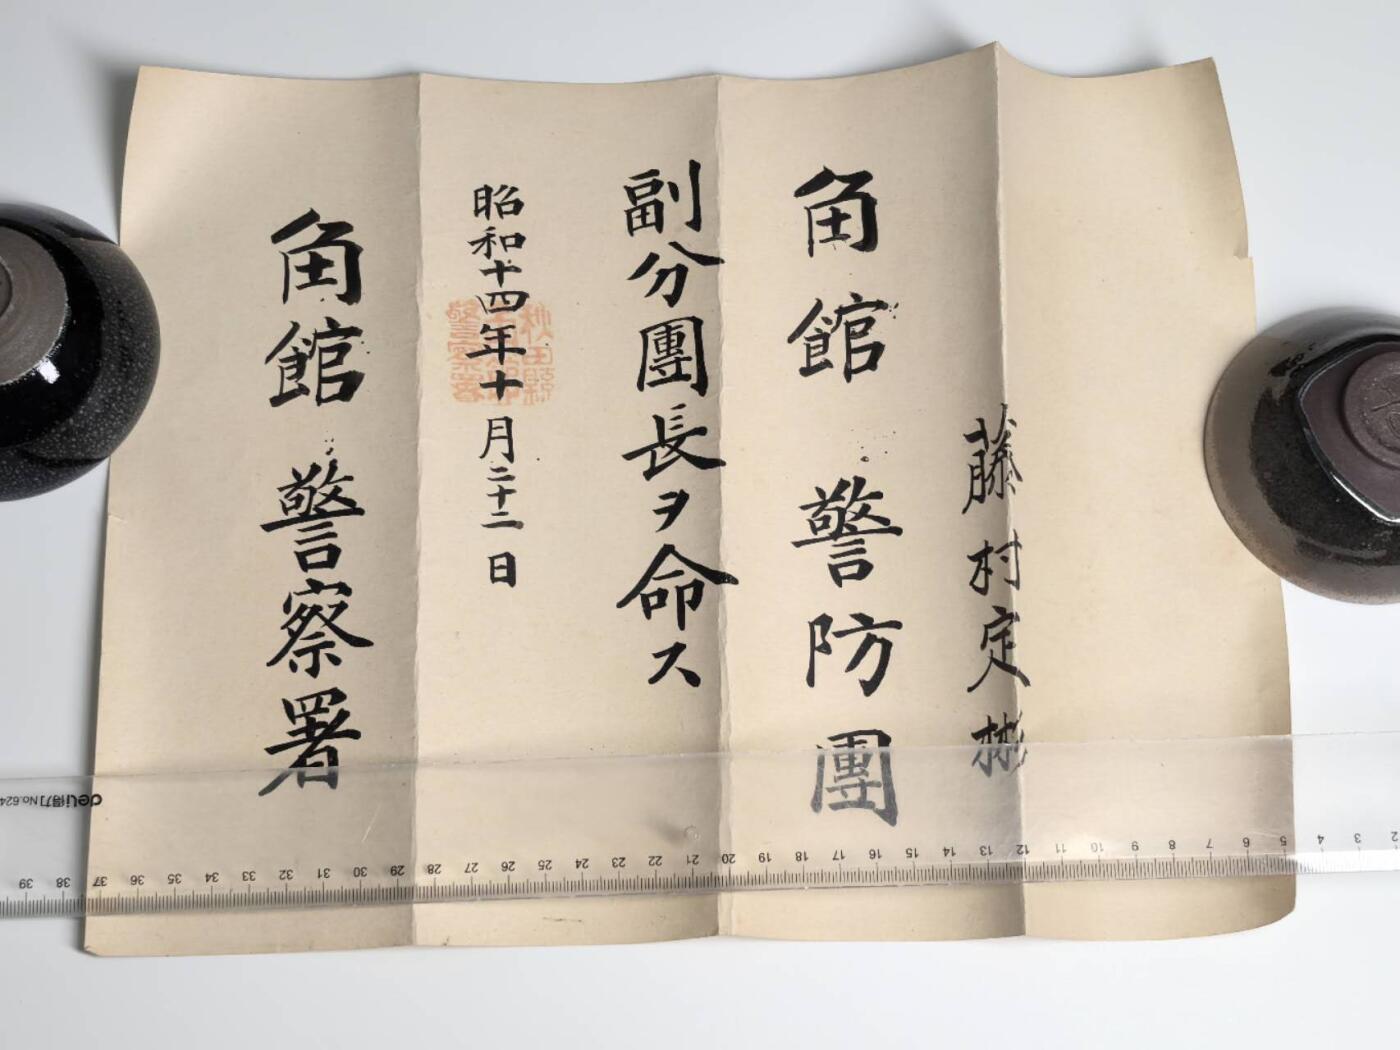 藤村定彬
角館警防團
副分團長ヲ命ス
昭和十四年十月二十二日
角館警察署
秋田縣
警察署
deli 得力 No.624
39 38 37 36 35 34 33 32 31 30 29 28 27 26 25 24 23 22 21 20 19 18 17 16 15 14 13 12 11 10 9 8 7 6 5 4 3 2